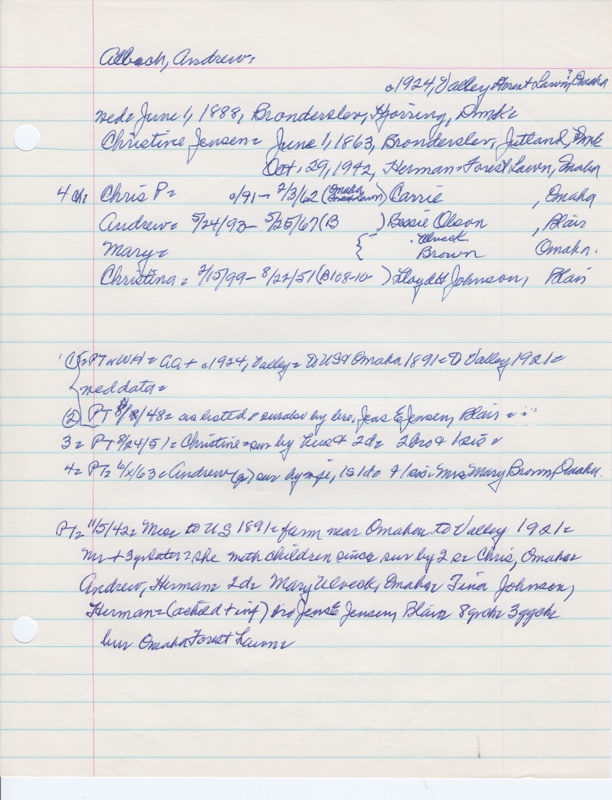 Albach, Andrew=
c1924, Valley Forest Lawn?, Omaha
wed= June 1, 1888, Bronderslev, Hjorring, Dmk=
Christine Jensen= June 1, 1863, Bronderslev, Jutland, Dmk
Oct. 29, 1942, Herman-Forest Lawn, Omaha
4 ch: Chris P= c/91- 2/3/62 (Omaha Forest Lawn) Carrie , Omaha
Andrew= 5/24/93- 5/25/67 (B ) Bessie Olson , Blair
Mary= { Ulveck Brown Omaha.
Christina= 2/15/99- 8/22/51 (B108-10- ) Lloyd H Johnson, Blair
(1)= PT & WH= AA+ c1924, Valley= To US & Omaha 1891= To Valley 1921=
wed data=
(2) PT 8/ /48= as listed & survive by bro. Jens E Jensen, Blair =
3= PT 8/24/51= Christine= sur by hus & 2d= 2 bro & 1 sis=
4= PT= 6/ /63= Andrew sur by wife, 1s 1d & 1 sis. Mrs Mary Brown, Omaha.
PT= 11/5/42= to US 1891= farm near Omaha to Valley 1921=
3 yr later= she with children since sur by 2 s= Chris, Omaha=
Andrew, Herman= 2d= Mary Ulveck, Omaha= Tina Johnson,
Herman= ( ) bro Jens E Jensen, Blair 8 grch= 3 ggch=
bur Omaha Forest Lawn=